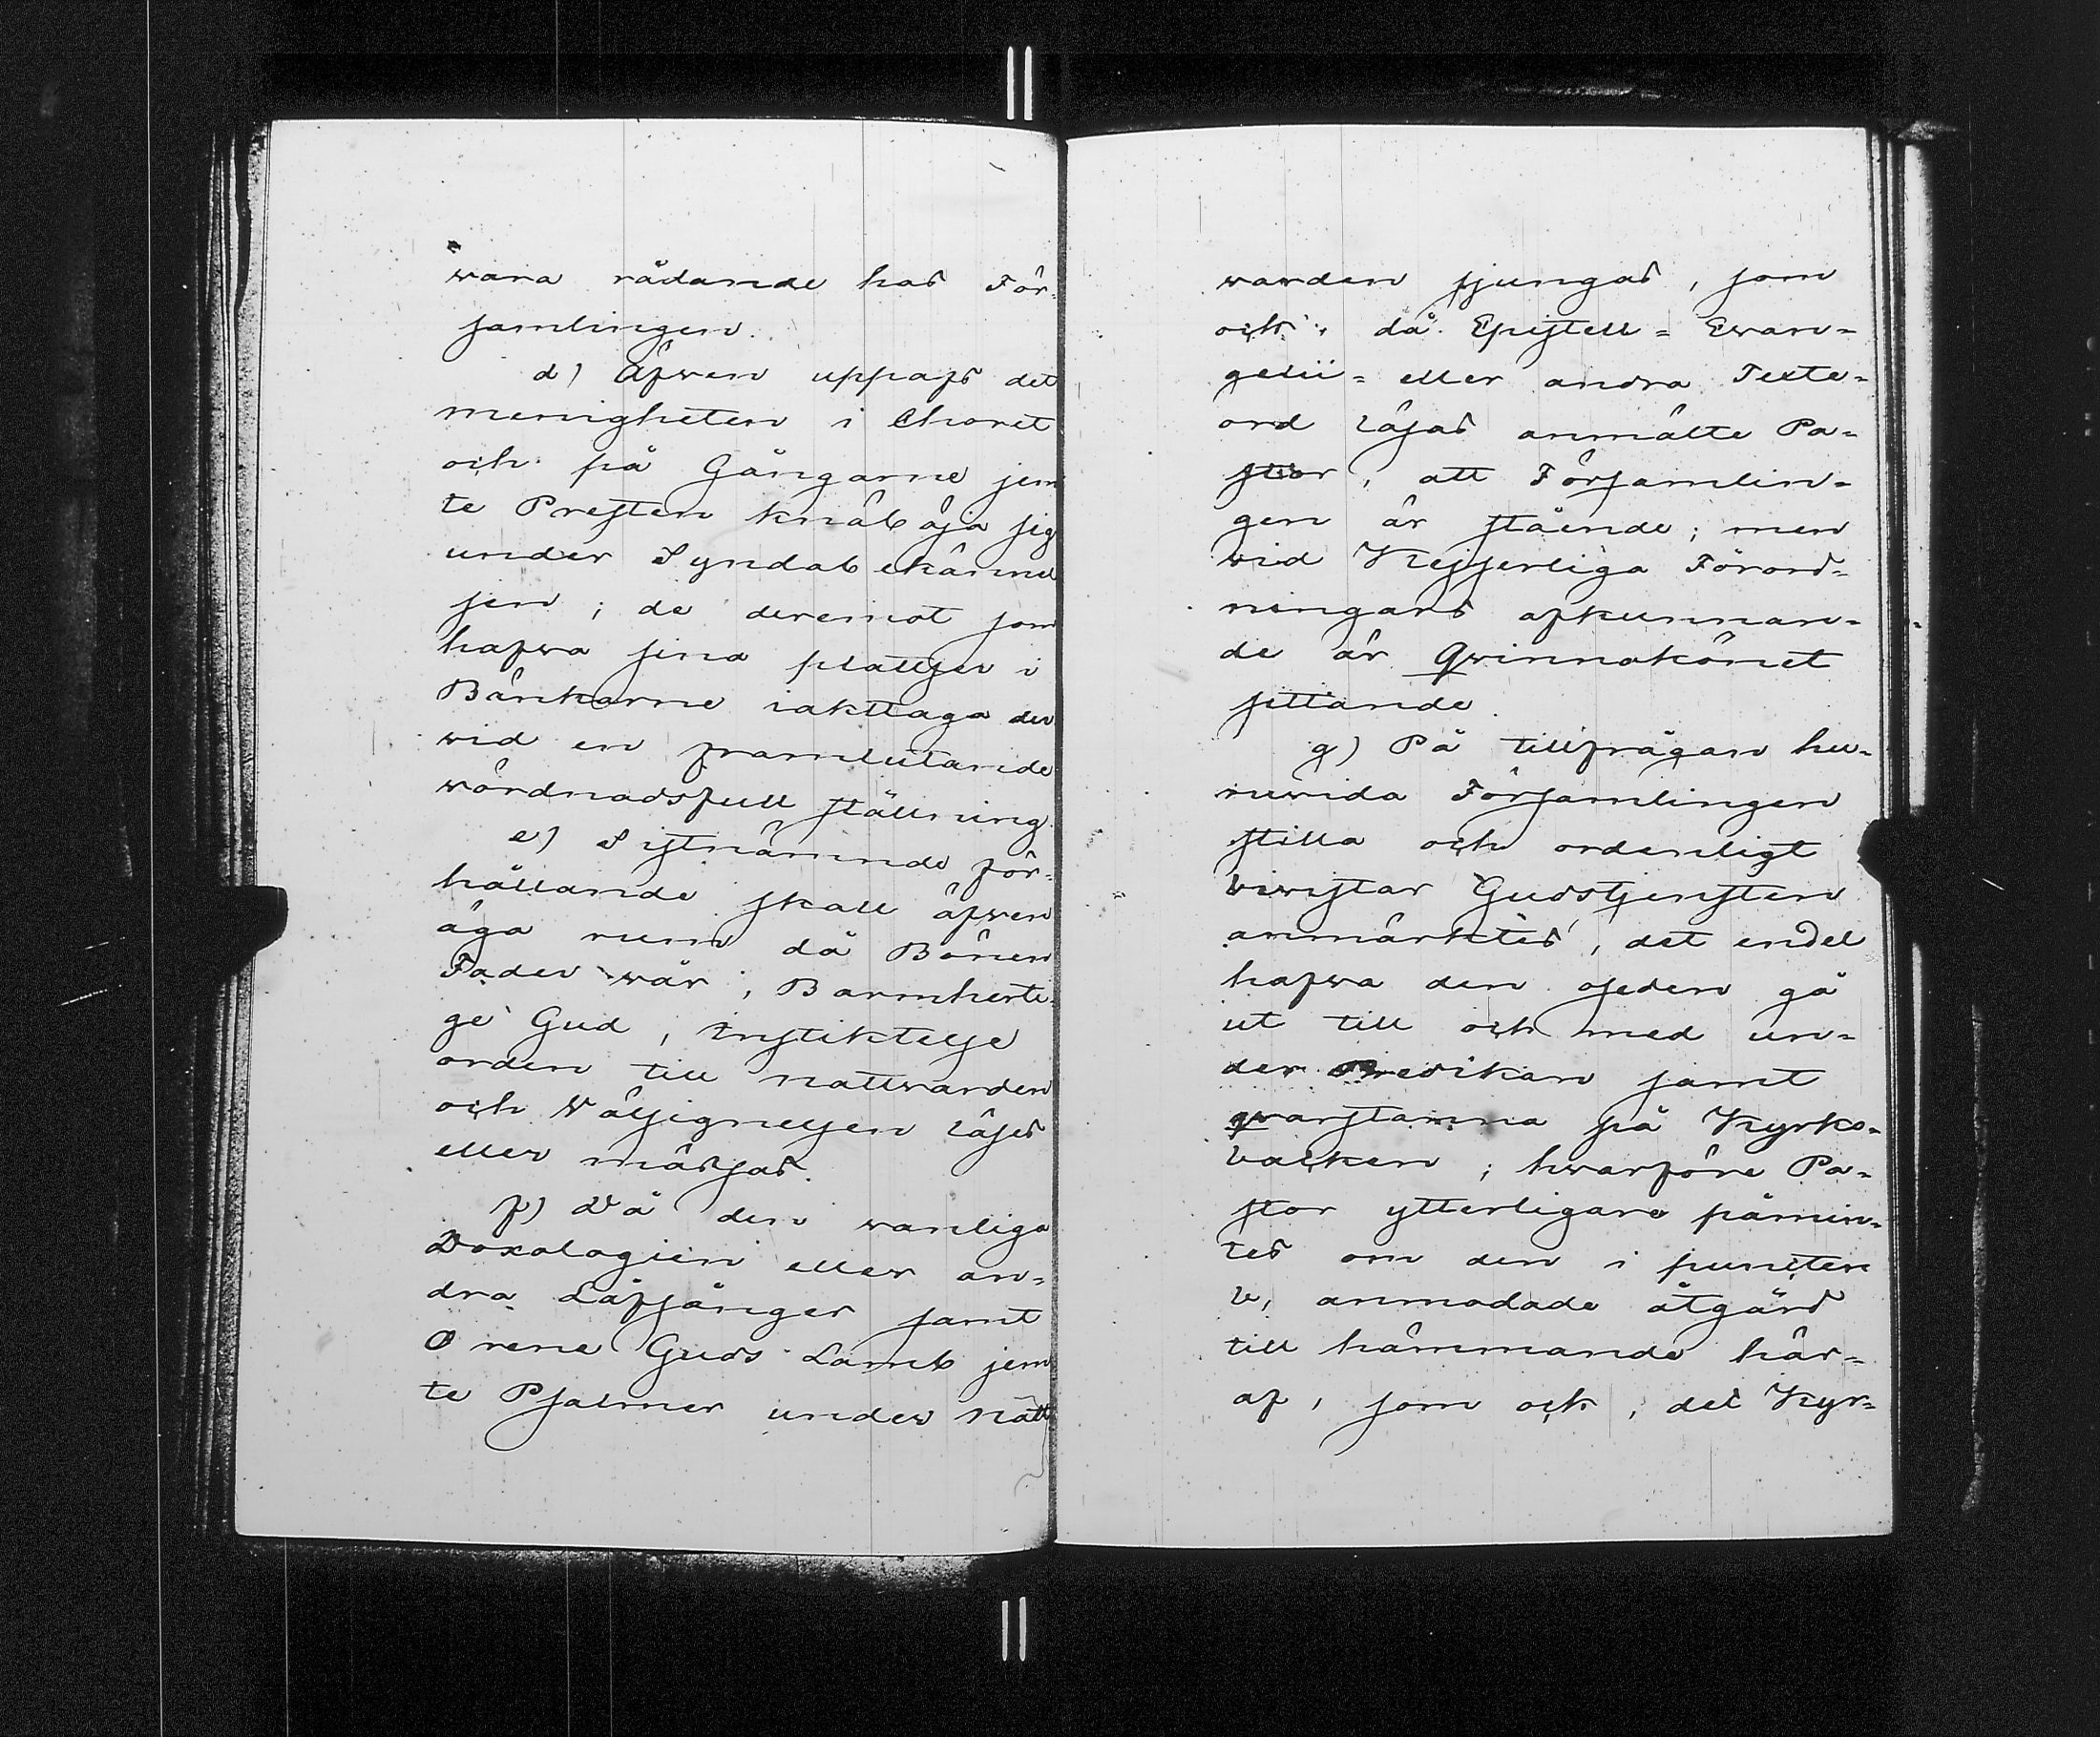 wara rådande hos För-
samlingen.
d) Äfwen uppafs det
menigheten i Choret
och på Gångarne jem
te Presten knäböja sig
under Syndabekännel
sen; de deremot som
hafwa sina platser i
Bänkarne iakttaga der
wid en framlutande
wördnadsfull ställning
e) Sistnämnde för-
hållande skall äfwen
äga rum då Bönen
Fader wår, Barmherti
ge Gud, Instiktelse
orden till nattwarden
och Wälsignelsen läses
eller mässas.
f) Då den wanliga
Doxologien eller an=
dra Låfsånger samt
O rene Guds Lamb jem
te Psalmer under Natt
warden sjungas, som
ock, då Epistell= Ewan=
gelii= eller andra Texte=
ord läsas anmälte Pa=
stor, att Församlin=
gen är stående; men
wid Kejserliga Förord=
ningars afkunnan=
de är Qwinnokönet
sittande.
g) På tillfrågan hu=
ruwida Församlingen
stilla och ordenligt
biwistar Gudstjensten
anmärktes, det endel
hafwa den oseden gå
ut till och med un=
der Predikan samt
qwarstanna på Kyrko=
backen; hwarföre Pa=
stor ytterligare påmin=
tes om den i puncten
b, anmodade åtgärd
till hämmande här=
af, som ock, det Kyr=